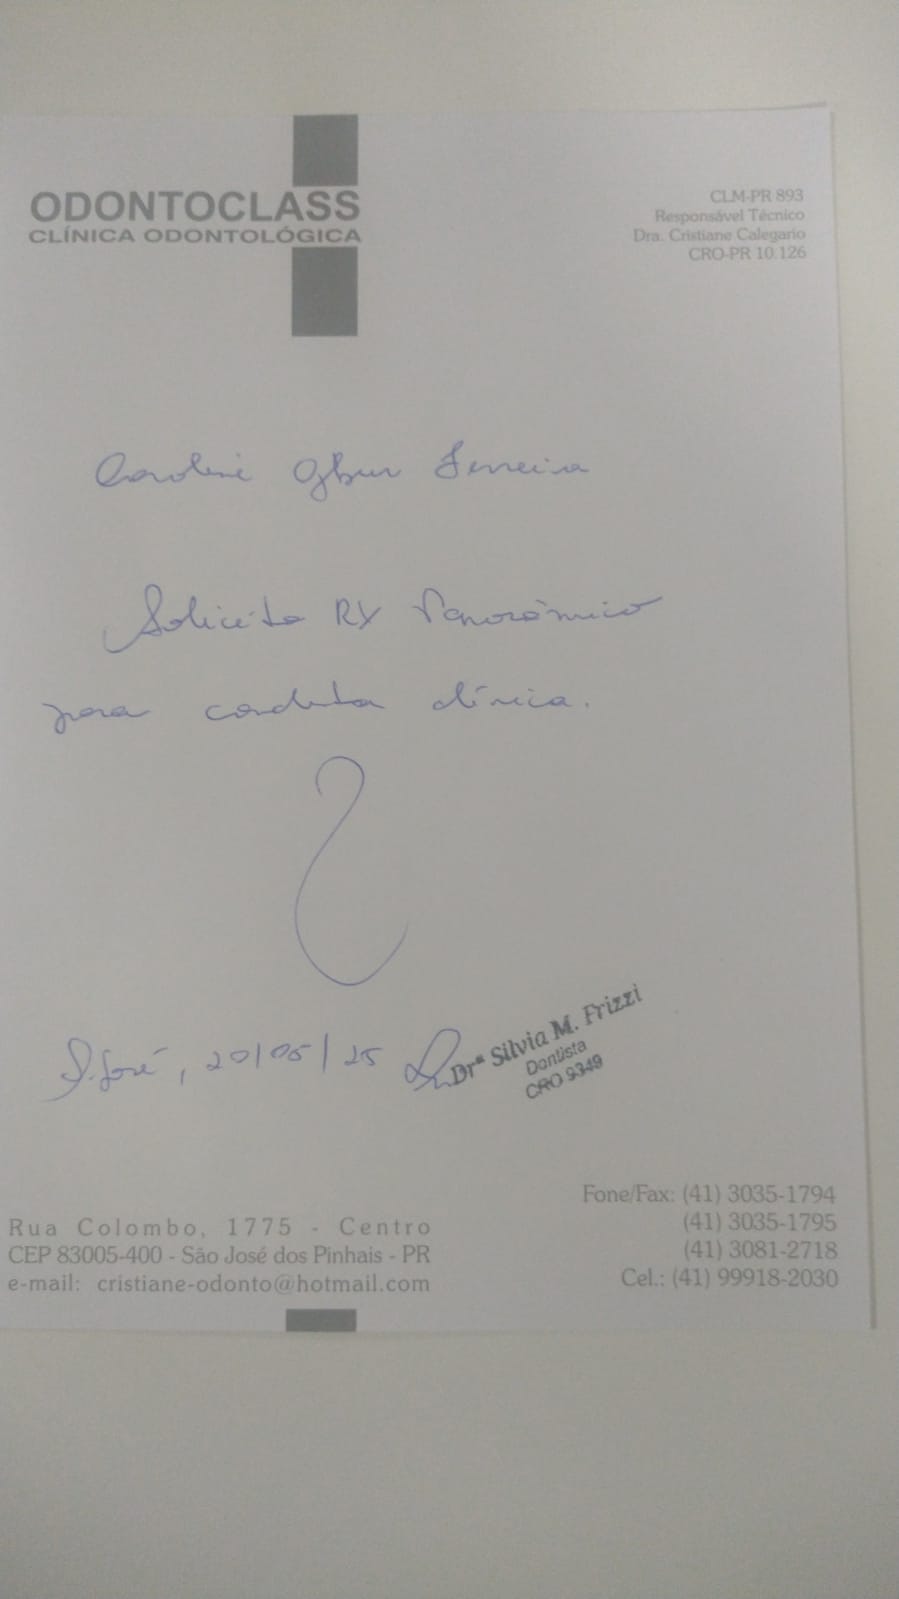 ODONTOCLASS
CLÍNICA ODONTOLÓGICA
CLM-PR 893
Responsável Técnico
Dra. Cristiane Calegario
CRO-PR 10.126
Caroline Ferreira
Solicito RX Panorâmico
para conduta clínica.
S. José, 20/05/25
Drª Silvia M. Frizzi
Dentista
CRO 9349
Rua Colombo, 1775 - Centro
CEP 83005-400 - São José dos Pinhais - PR
e-mail: cristiane-odonto@hotmail.com
Fone/Fax: (41) 3035-1794
(41) 3035-1795
(41) 3081-2718
Cel.: (41) 99918-2030